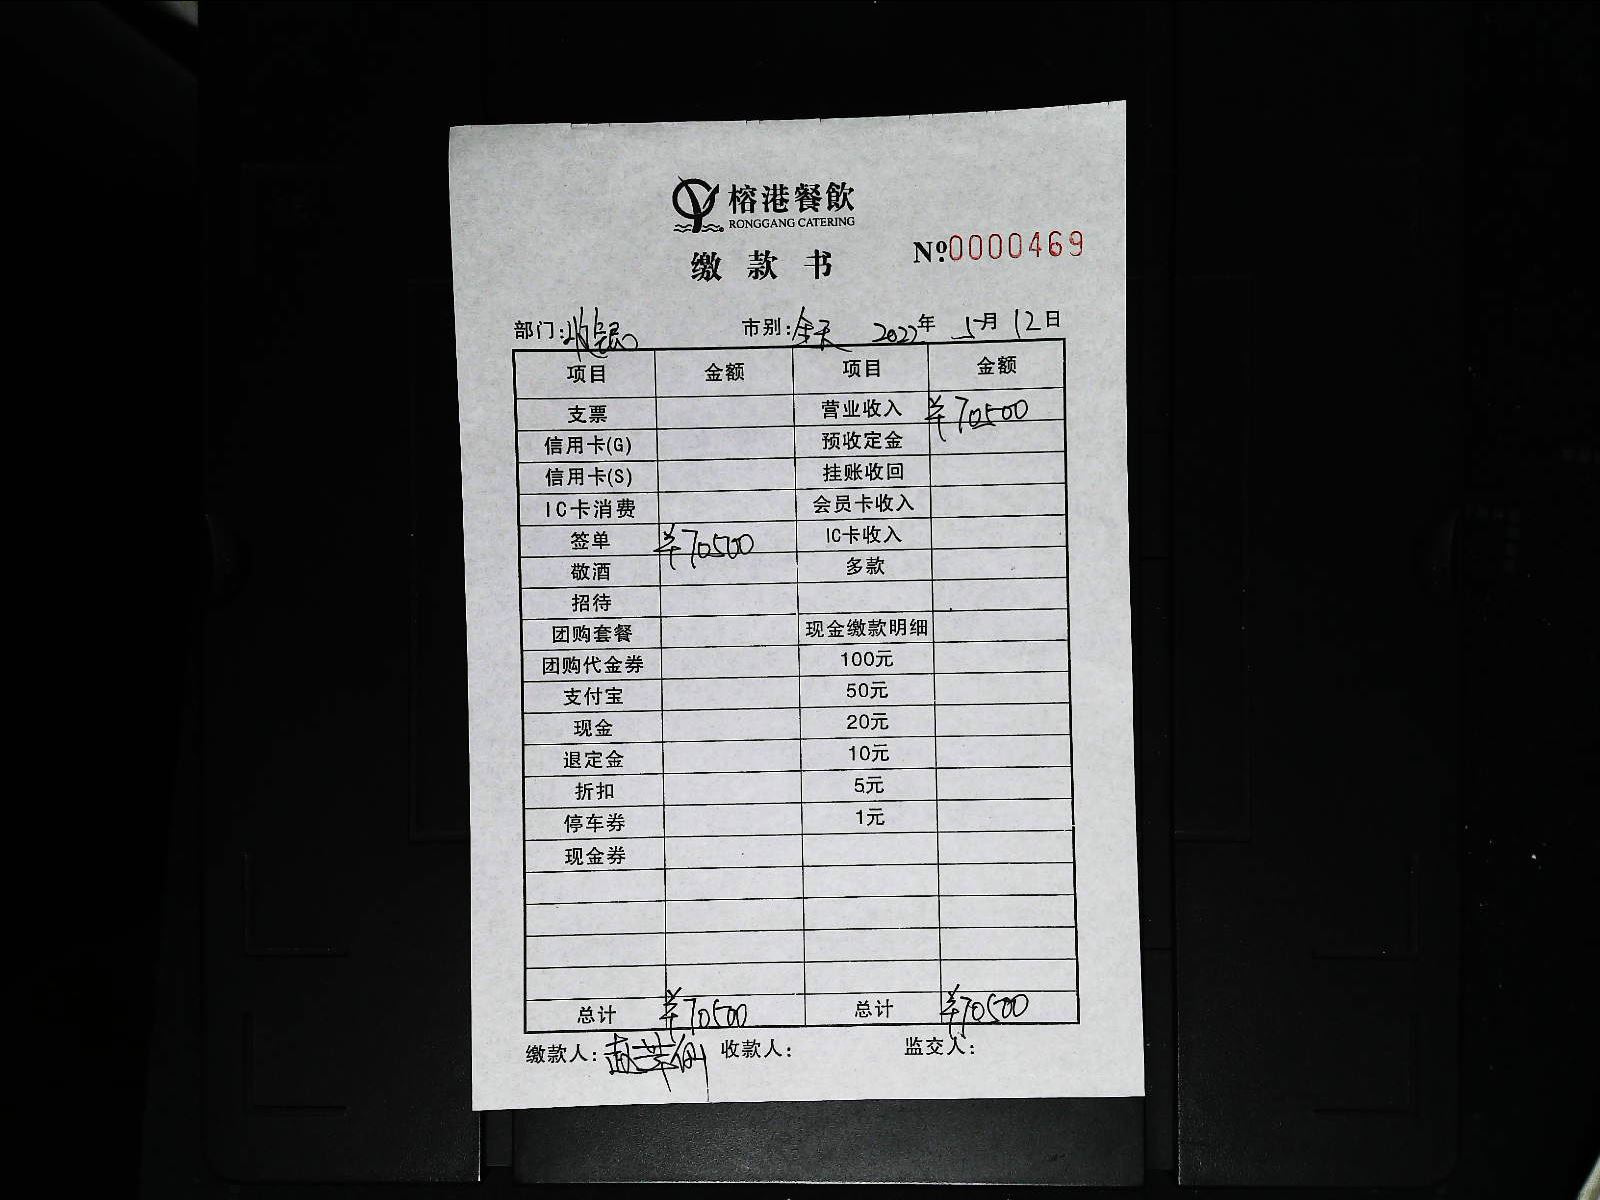 榕港餐飲
RONGGANG CATERING
缴款书
Nº.0000469
部门:收银 市别:全天 2022年 5月 12日
项目 金额 项目 金额
支票 营业收入 ¥70500
信用卡(G) 预收定金
信用卡(S) 挂账收回
IC卡消费 会员卡收入
签单 ¥70500 IC卡收入
敬酒 多款
招待
团购套餐 现金缴款明细
团购代金券 100元
支付宝 50元
现金 20元
退定金 10元
折扣 5元
停车券 1元
现金券
总计 ¥70500 总计 ¥70500
缴款人: 收款人: 监交人: